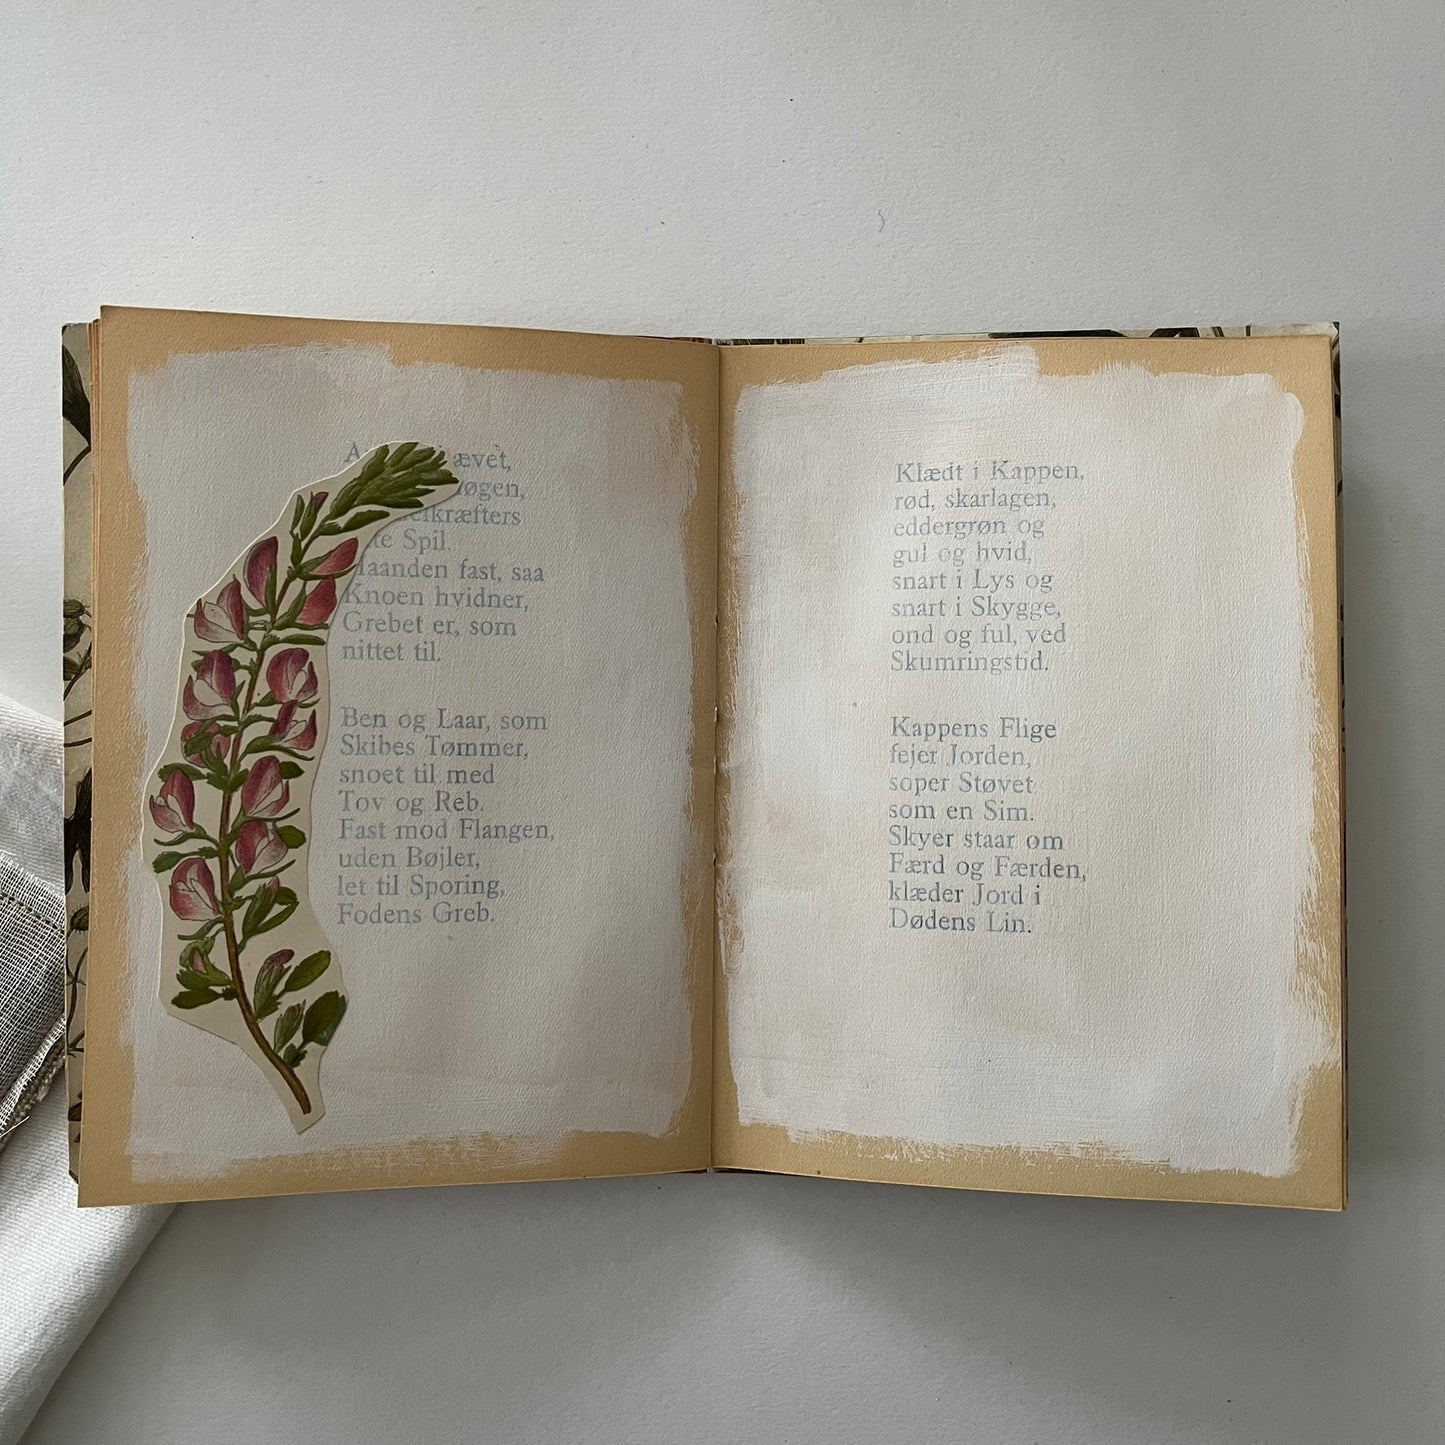 fast, saa
Knoen hvidner,
Grebet er, som
nittet til.
Ben og Laar, som
Skibes Tømmer,
snoet til med
Tov og Reb.
Fast mod Flangen,
uden Bøjler,
let til Sporing,
Fodens Greb.
Klædt i Kappen,
rød, skarlagen,
eddergrøn og
gul og hvid,
snart i Lys og
snart i Skygge,
ond og ful, ved
Skumringstid.
Kappens Flige
fejer Jorden,
soper Støvet
som en Sim.
Skyer staar om
Færd og Færden,
klæder Jord i
Dødens Lin.